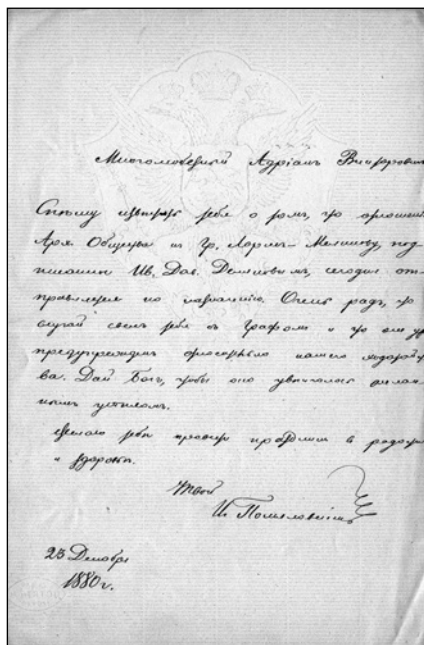 Многолюбезный Адріанъ Викторовичъ
Спѣшу извѣстить тебя о томъ, что отношеніе
Арх. Общества къ Гр. Лорисъ-Меликову, под
писанное Ив. Дав. Деляновымъ, сегодня от-
правляется по назначенію. Очень радъ, что
случай свелъ тебя съ Графомъ и что онъ уж
предупрежденъ относительно нашего ходатайс
ва. Дай Богъ, чтобы оно увѣнчалось
успѣхомъ.
Желаю тебѣ провести праздники в радости
и здоровьи.
Твой
И. Помяловскій
23 Декабря
1880 г.